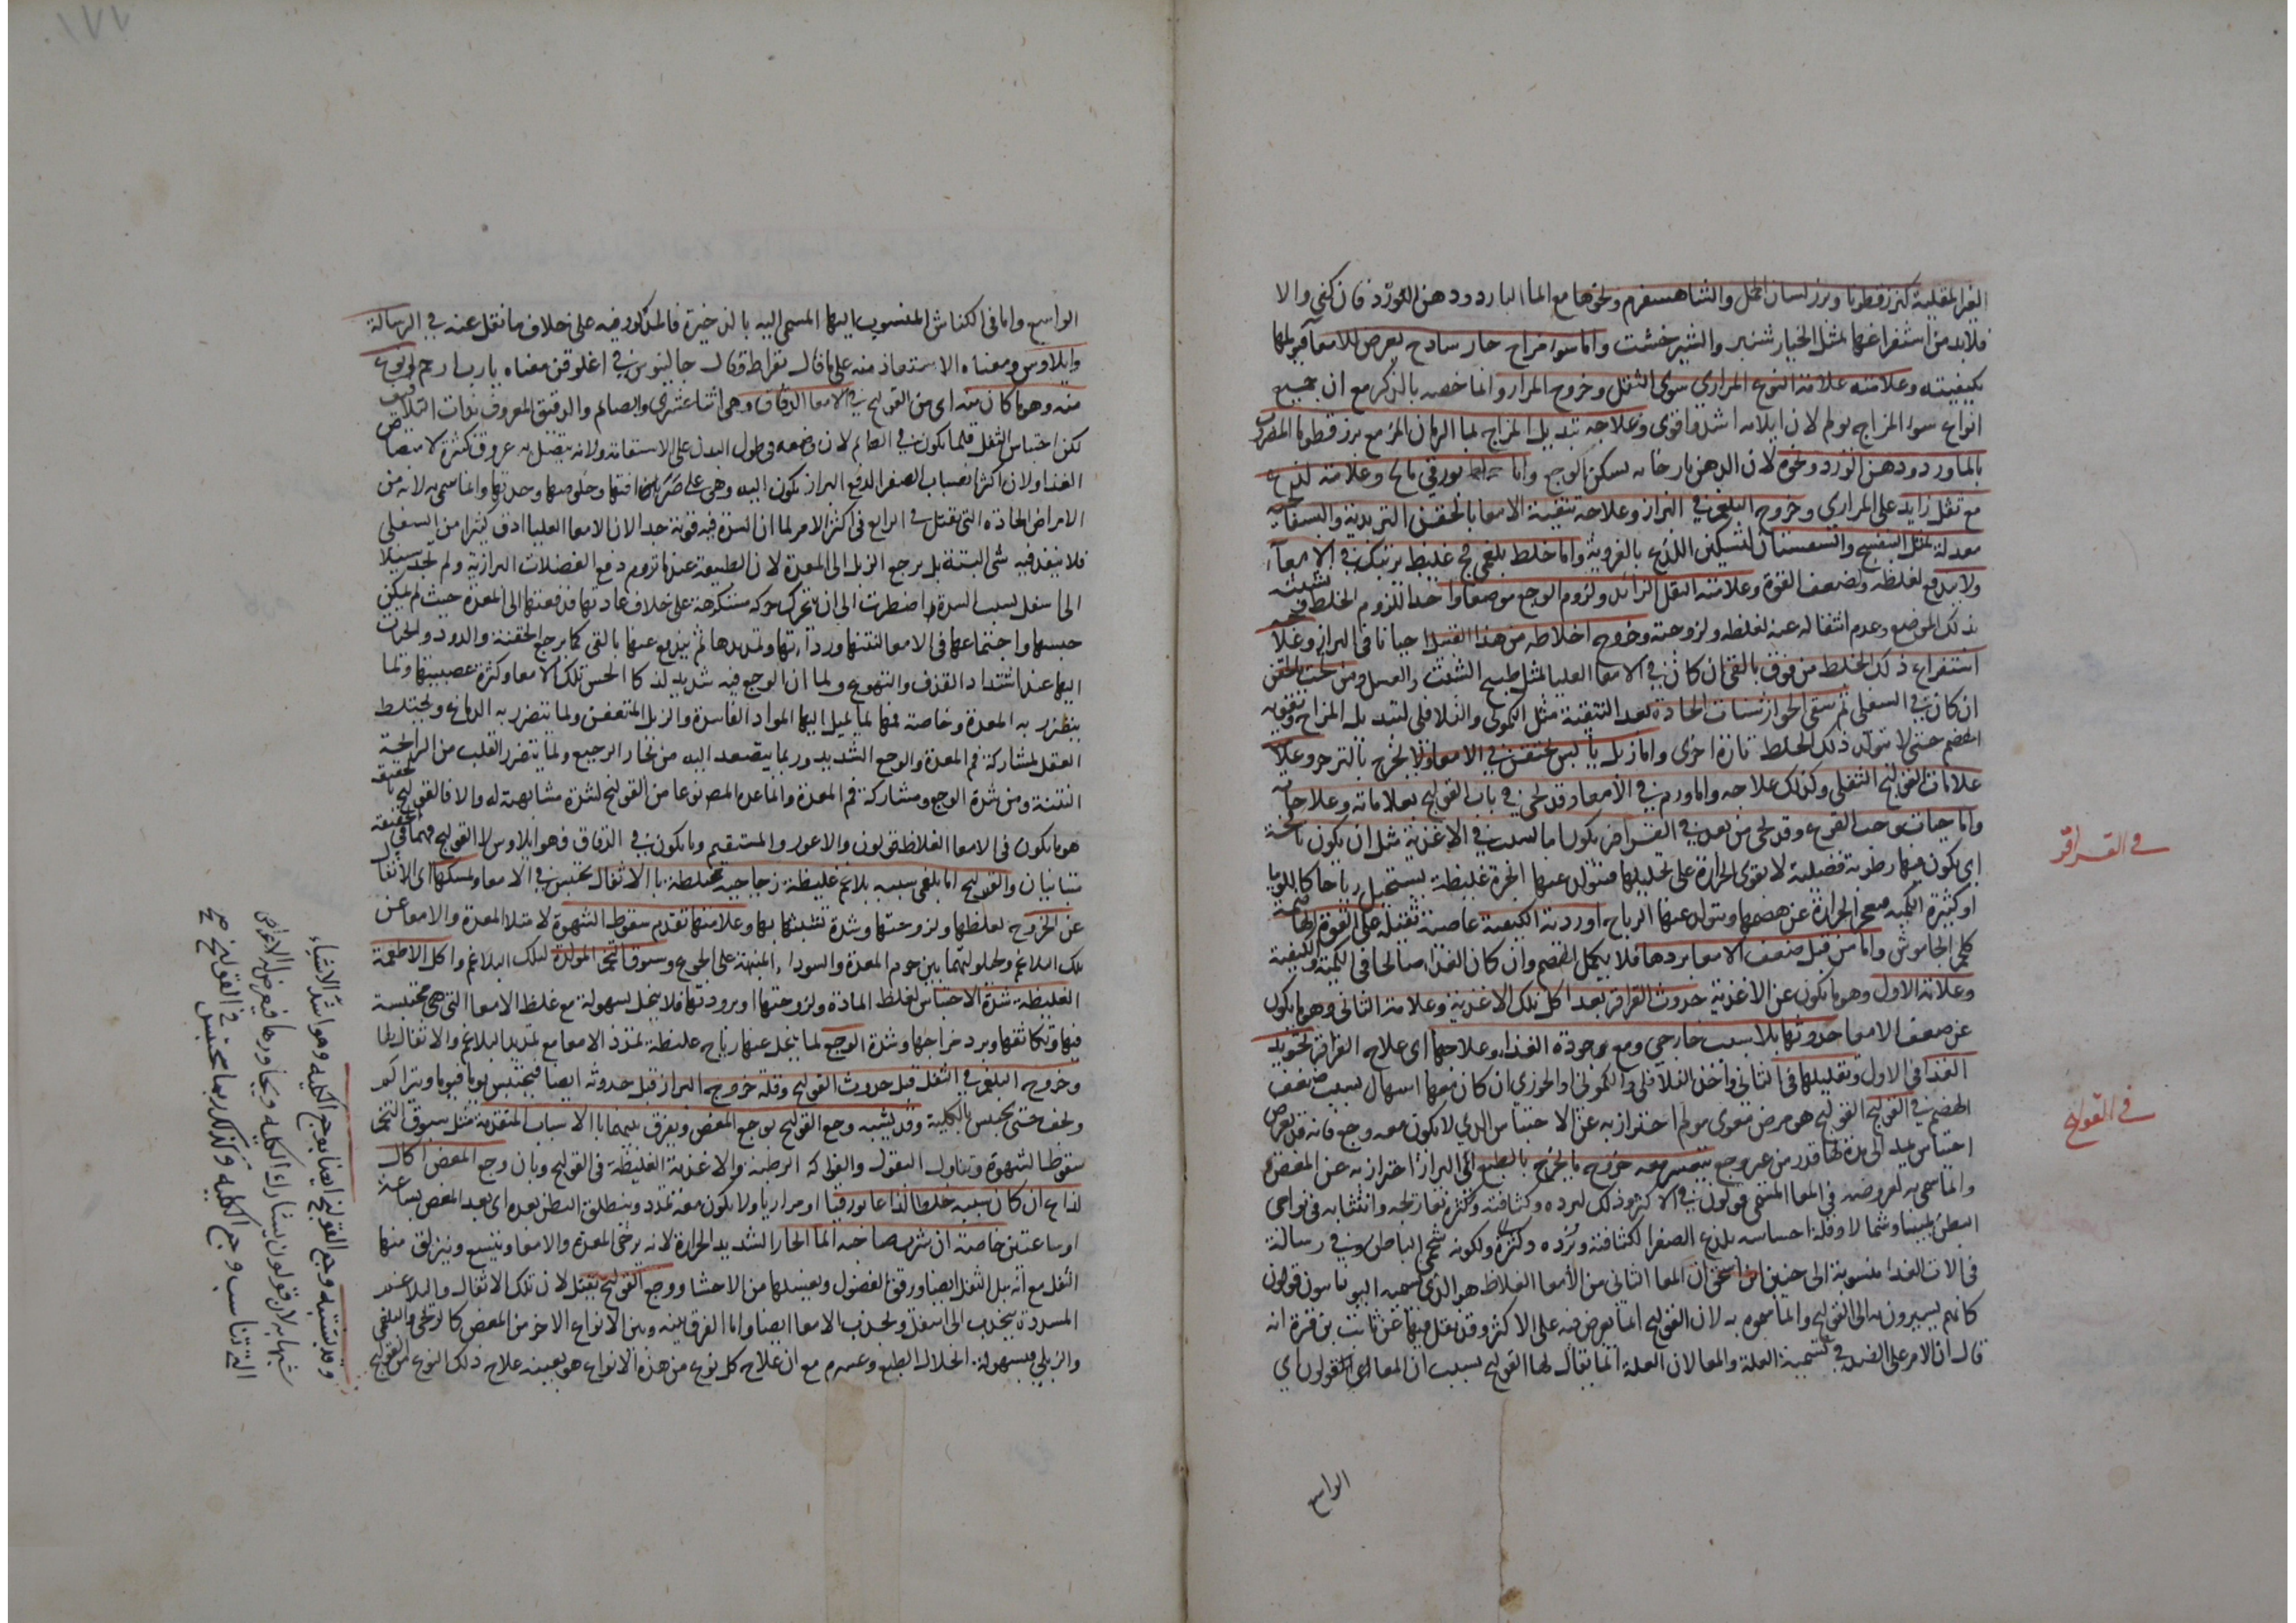 المقلية كبزرقطونا وبزر لسان الحمل والشاهسفرم ونحوها مع الماء البارد ودهن الورد فان كفى والا
فلا بد من استفراغها بمثل الخيار شنبر والشير خشت واما سوء مزاج حار ساذج يعرض للامعاء
بكيفيته وعلامته علامة النوع المراري سوى الثقل وخروج المرار وانما خصه بالذكر مع ان جميع
انواع سوء المزاج يولم لان ايلامه اشد واقوى وعلاجه تبديل المزاج بماء الرمان المز مع بزرقطونا
بالماورد ودهن الورد ونحوه لان الدهن بارخائه يسكن الوجع واما بورقي مالح وعلامته لذع
مع ثقل زايد على المراري وخروج البلغم في البراز وعلاجه تنقية الامعا بالحقن التربدية
معدلة بمثل البنفسج والسبستان لتسكين اللذع بالغروية واما خلط بلغمي فج غليظ يرتبك في الامعاء
ولا يندفع لغلظه ولضعف القوة وعلامته الثقل الزائد ولزوم الوجع موضعا واحدا للزوم الخلط
ذلك الموضع وعدم انتقاله عنه لغلظه ولزوجته وخروج اخلاط من هذا القبيل احيانا في البراز
استفراغ ذلك الخلط من فوق بالقي ان كان في الامعا العليا بمثل طبيخ الشبث والعسل ومن تحت بالحقن
ان كان في السفلى ثم سقي الجوارشنات الحادة بعد التنقية مثل الكموني والفلافلي لتبديل المزاج
الهضم حتى لا يتولد ذلك الخلط تارة اخرى واما زبل يابس يحتقن في الامعا ولا يخرج
علامات القولنج الثفلي وكذلك علاجه واما ورم في الامعا وقد يجي في باب القولنج بعلاماته وعلاجاته
واما حيات وحب القرع وقد يجي من بعد في القراقر يكون اما بسبب في الاغذية مثل ان يكون
اي يكون فيها رطوبة فضلية لا تقوى الحرارة على تحليلها فيتولد عنها ابخرة غليظة يستحيل رياحا كاللوبيا
او كثيرة الكمية فيعجز الحرارة عن هضمها ويتولد عنها الرياح او ردية الكيفية عاصية تثقل على القوة
كلحم الجاموش واما من قبل ضعف الامعا بردها فلا يكمل الهضم وان كان الغذا صالحا في الكمية والكيفية
وعلامة الاول وهو ما يكون عن الاغذية حدوث القراقر بعد اكل تلك الاغذية وعلامة الثاني وهو ما يكون
عن ضعف الامعا حدوثها بلا سبب خارجي ومع جودة الغذا وعلاجها اي علاج القراقر تجويد
الغذا في الاول وتقليلها في الثاني واخذ الفلافلي والكموني والخوزي ان كان معها اسهال بسبب ضعف
الهضم في القولنج القولنج هو مرض معوي مولم احترز به عن الاحتباس الذي لا يكون معه وجع فانه قد يعرض
احتباس الى مدة لها قدر من غير وجع يتعسر معه خروج ما يخرج بالطبع اي البراز احترز به عن المغص
وانما سمي به لعروضه في المعا المسمى قولون في الاكثر وذلك لبرده وكثافته وكثرة تعاريجه وانثنائه في نواحي
البطن يمينا وشمالا وقلة احساسه بلذع الصفرا لكثافته وبرده ولكونه شحمي الباطن وفي رسالة
في الات الغذا منسوبة الى حنين ابن اسحق ان المعا الثاني من الامعا الغلاظ هو الذي تسميه اليونانيون قولون
كانهم يشيرون به الى القولنج وانما سموه به لان القولنج انما يعرض فيه على الاكثر وقد نقل فيها عن ثابت بن قرة انه
قال ان الامر على الضد في تسمية العلة والمعا لان العلة انما يقال لها القولنج بسبب ان المعا القولون اي
الواسع
في القراقر
في القولنج
الواسع واما في الكناش المنسوب اليها المسمى اليه بالذخيرة فالمذكور فيه على خلاف ما نقل عنه في الرسالة
وايلاوس ومعناه الاستعاذ منه على ما قال بقراط وقال جالينوس في اغلوقن معناه يا رب ارحم
منه وهو ما كان منه اي من القولنج في الامعا الدقاق وهي اثنا عشري والصائم والدقيق المعروف
لكن احتباس الثفل قلما يكون في الصائم لان وضعه في طول البدن على الاستقامة ولانه يتصل به عروق كثيرة لامتصاص
الغذا ولان اكثر انصباب الصفرا لدفع البراز يكون اليه وهي على وانما سمي به لانه من
الامراض الحادة التي تقتل في الرابع في اكثر الامر لما ان السدة فيه قوية جدا لان الامعا العليا ادق كثيرا من السفلى
فلا ينفذ فيه شي البتة بل يرجع الزبل الى المعدة لان الطبيعة عندما تروم دفع الفضلات البرازية ولم تجد سبيلا
الى اسفل بسبب السدة اضطرت الى ان تتحرك حركة مستكرهة على خلاف عادتها فدفعتها الى المعدة حيث لم يمكن
حبسها واجتماعها في الامعا لنتنها ورداءتها وتمديدها ثم يندفع عنها بالقي كما يرجع الحقنة والدود
اليها عند اشتداد القذف والتهوع ولما ان الوجع فيه شديد لذكا الحس تلك الامعا وكثرة عصبيتها ولما
يتضرر به المعدة وخاصة فمها لما يميل اليها المواد الفاسدة والزبل المتعفن ولما يتضرر به الدماغ ويختلط
العقل لمشاركة فم المعدة والوجع الشديد وربما يتصعد اليه من بخار الرجيع ولما يتضرر القلب من الرايحة
النتنة ومن شدة الوجع ومشاركة فم المعدة وانما عده المص نوعا من القولنج لشدة مشابهته له والا فالقولنج بالحقيقة
هو ما يكون في الامعا الغلاظ قولون والاعور والمستقيم وما يكون في الدقاق فهو ايلاوس لا القولنج فهما في الحقيقة
متباينان والقولنج اما بلغمي سببه بلاغم غليظة زجاجية مختلطة بالاثفال تحتبس في الامعا وتمسكها اي الاثفال
عن الخروج لغلظها ولزوجتها وشدة تشبثها بها وعلامتها تقدم سقوط الشهوة لامتلا المعدة والامعا عن
تلك البلاغم وحيلولتها بين جرم المعدة والسودا المنبهة على الجوع وسبوق التخم المولدة لتلك البلاغم واكل الاطعمة
الغليظة وشدة الاحتباس لغلظ المادة ولزوجتها وبرودتها فلا ينحل بسهولة مع غلظ الامعا التي هي محتبسة
فيها وتكاثفها وبرد مزاجها وشدة الوجع لما ينحل عنها رياح غليظة تمدد الامعا مع تمديد البلاغم والاثفال لها
وخروج البلغم في الثفل قبل حدوث القولنج وقلة خروج البراز قبل حدوثه ايضا فيحتبس يوما فيوما ويتراكم
ويجف حتى يحتبس بالكلية وقد يشبه وجع القولنج بوجع المغص ويفرق بينهما بالاسباب المتقدمة مثل سبوق التخم
سقوط الشهوة وتناول البقول والفواكه الرطبة والاغذية الغليظة في القولنج وبان وجع المغص اكال
لذاع ان كان سببه خلطا لذاعا بورقيا او مراريا ولا يكون معه تمدد وينطلق البطن بعده اي بعد المغص بساعة
او ساعتين خاصة ان شرب صاحبه الماء الحار الشديد الحرارة لانه يرخي المعدة والامعا ويتسع وينزلق منها
الثفل مع انه يبل الثفل ايضا ويرقق الفضول ويغسلها من الاحشا ووجع القولنج يثقل لان تلك الاثفال والبلاغم
المسددة ينجذب الى اسفل وتجذب الامعا ايضا واما الفرق بينه وبين الانواع الاخر من المغص كالريحي والبلغمي
والزبلي فبسهولة انحلال الطبع وعسره مع ان علاج كل نوع من هذه الانواع هو بعينه علاج ذلك النوع من القولنج
وقد يشتبه وجع القولنج ايضا بوجع الكلية وهو اشد الاشياء
شبها به لان قولون يشارك الكلية ويجاورها فيعرض له الاعراض
التي تناسب وجع الكلية وكذلك ربما يحتبس في القولنج صح